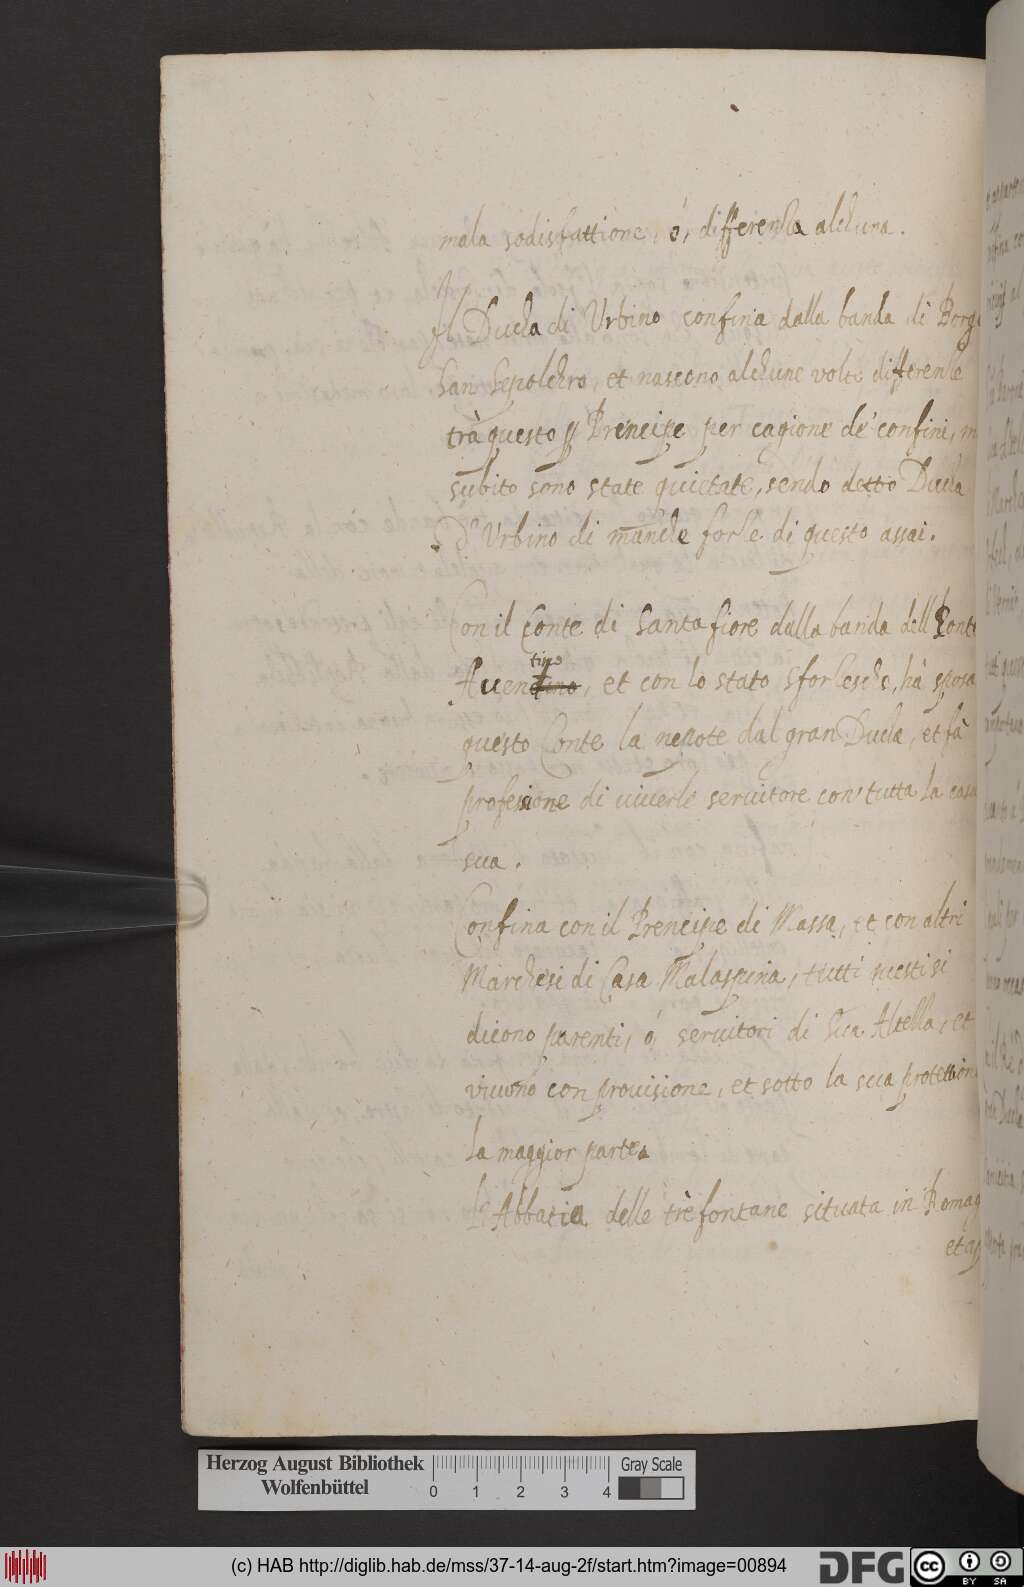 mala sodisfattione, ó, differenza alcuna.
Il Ducha di Urbino confina dalla banda di Borgo
San Sepolchro, et nascono alchune volte differenze
trà questo Prencipe per cagione de' confini, m
subito sono state quietate, sendo detto Ducha
d'Urbino di manche forze di questo assai.
Con il Conte di Santa fiore dalla banda dell
tino
Aventino, et con lo stato Sforzescho, hà sposa
questo Conte la nepote dal gran Ducha, et fà
profesione di viverle servitore con' tutta la casa
sua.
Confina con il Prencipe di Massa, et con altri
Marchesi di Casa Malaspina, tutti questi si
dicono parenti, ó servitori di Sua Altezza, et
vivono con provisione, et sotto la sua protettione
la maggior parte.
L'Abbatia delle trè fontane situata in Romag
et ap
Herzog August Bibliothek
Wolfenbüttel
0 1 2 3 4
Gray Scale
(c) HAB http://diglib.hab.de/mss/37-14-aug-2f/start.htm?image=00894
DFG
cc BY SA